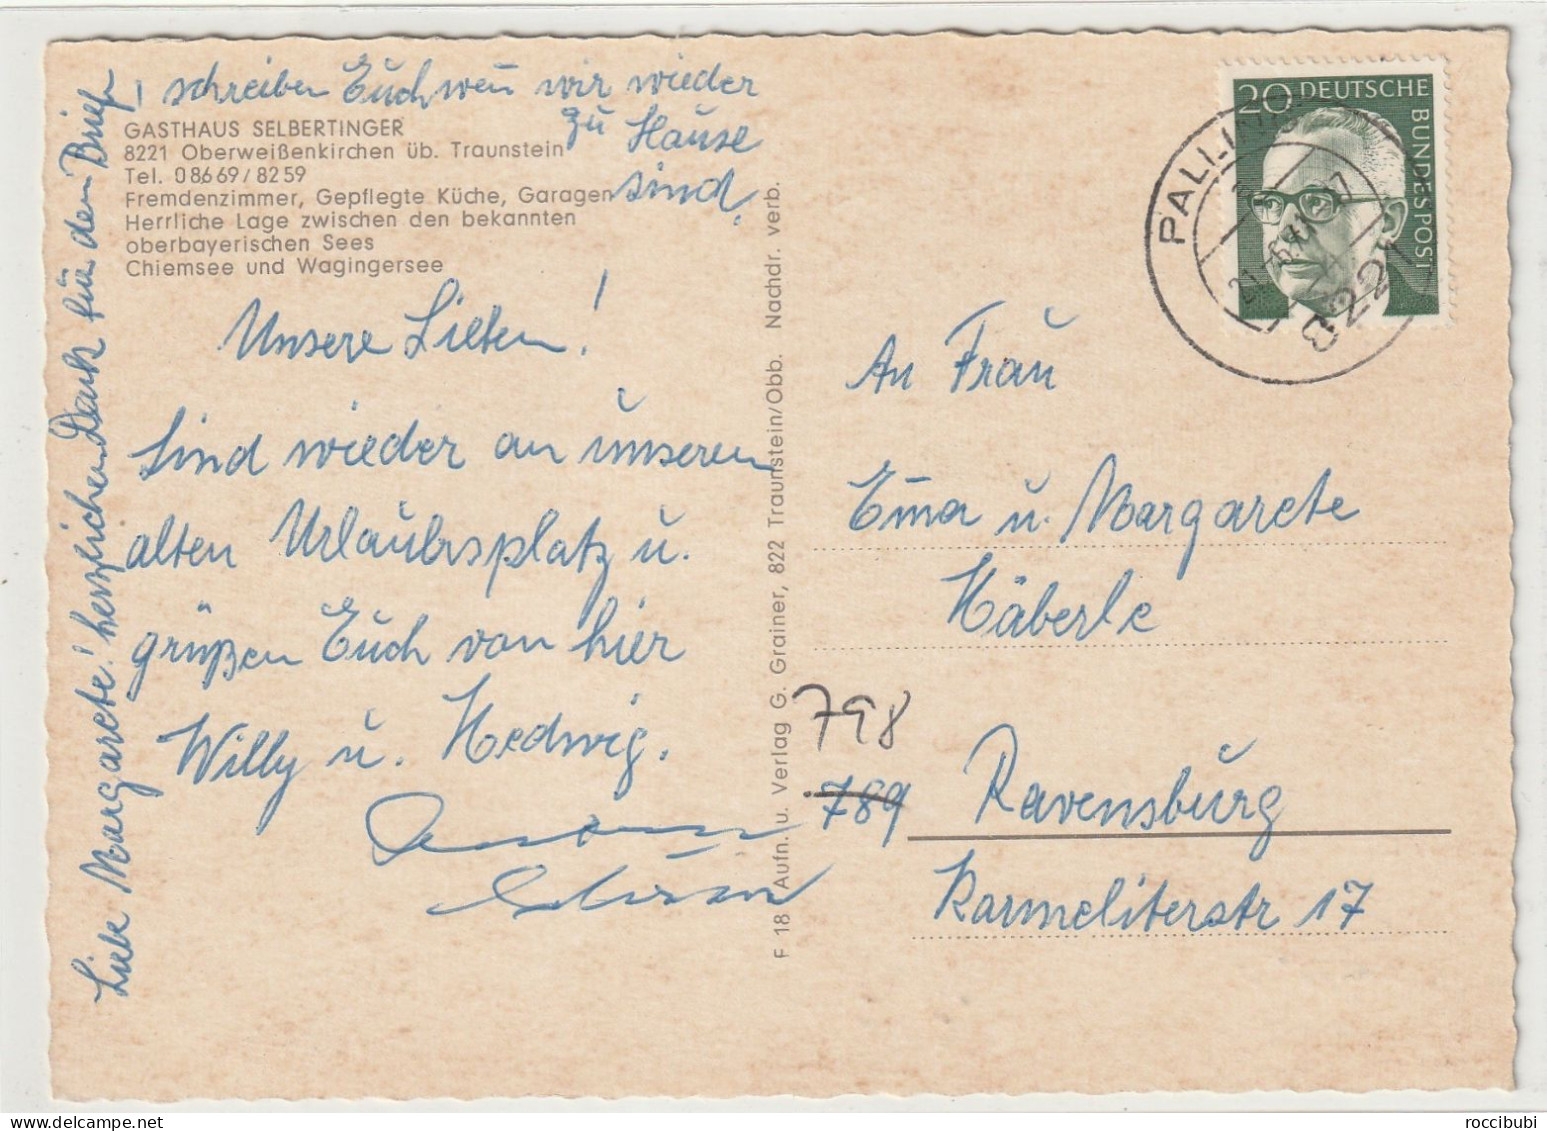 schreiben Euch wen wir wieder
zu Hause
sind.
GASTHAUS SELBERTINGER
8221 Oberweißenkirchen üb. Traunstein
Tel. 08669/8259
Fremdenzimmer, Gepflegte Küche, Garagen
Herrliche Lage zwischen den bekannten
oberbayerischen Sees
Chiemsee und Wagingersee
Unsere Lieben!
Sind wieder an unseren
alten Urlaubsplatz u.
grüßen Euch von hier
Willy u. Hedwig.
Liebe Margarete! herzlichen Dank für den Brief
F 18 Aufn. u. Verlag G. Grainer, 822 Traunstein/Obb. Nachdr. verb.
20 DEUTSCHE
BUNDESPOST
PALLING
8221
An Frau
Ema u. Margarete
Häberle
798
789 Ravensburg
Karmeliterstr 17
roccibubi